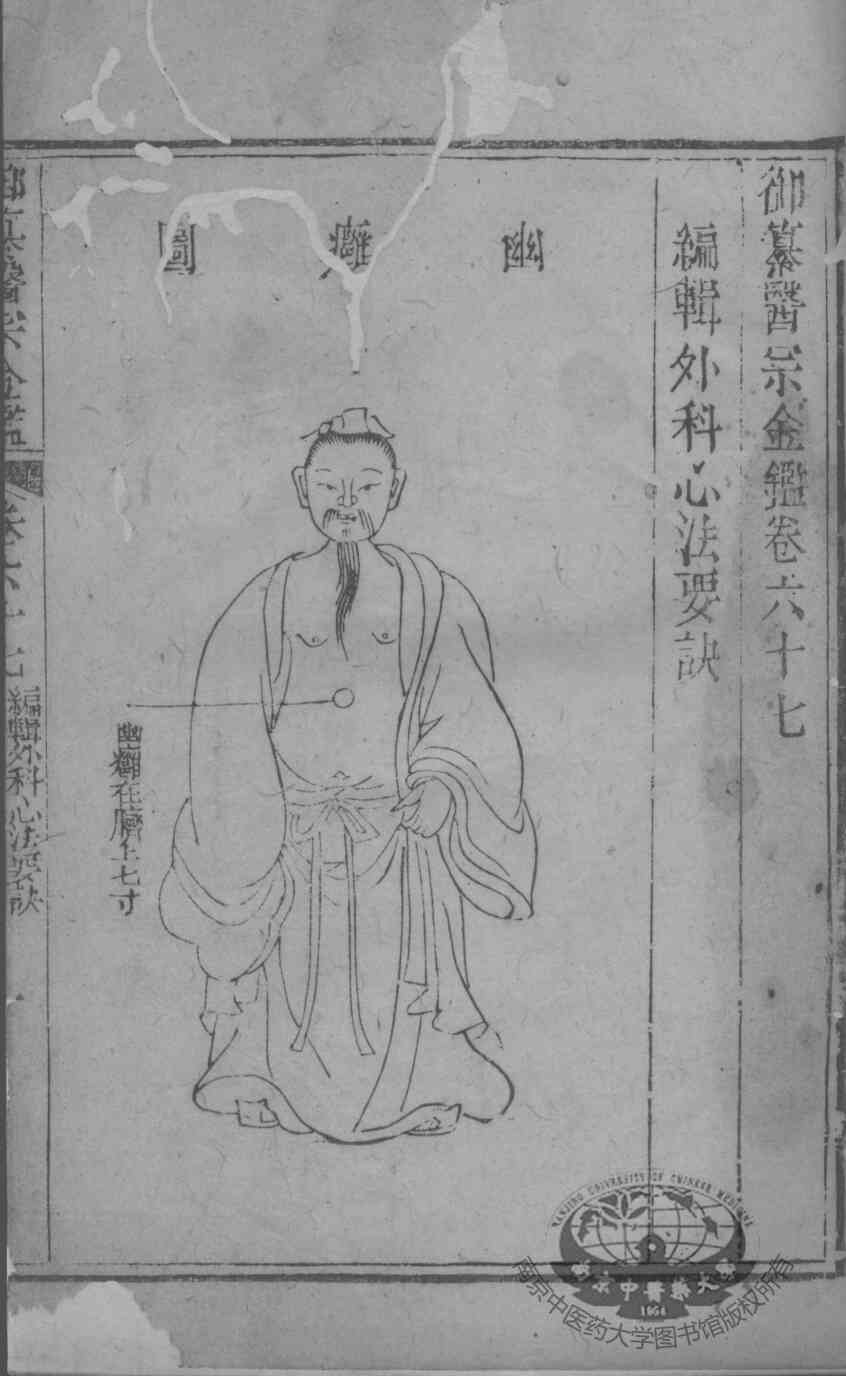 御纂醫宗金鑑卷六十七
編輯外科心法要訣
幽癰圖
幽癰在臍上七寸
卷之六十七
編輯外科心法要訣
NANJING UNIVERSITY OF CHINESE MEDICINE
南京中医药大学
1954
南京中医药大学图书馆版权所有